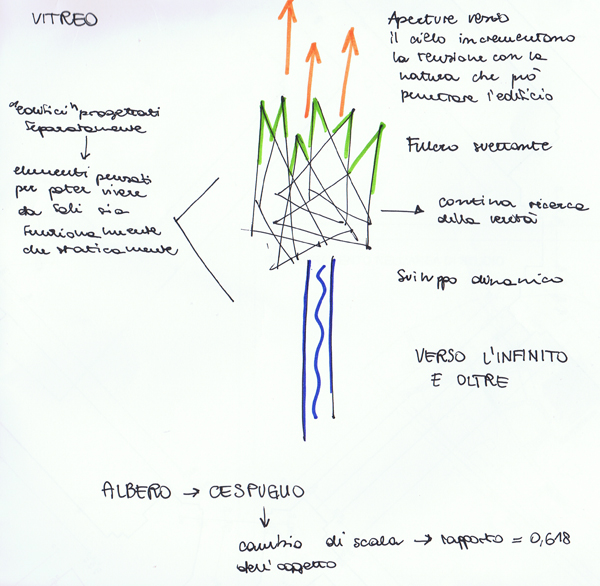 VITREO
Aperture verso
il cielo incrementano
la tensione con la
natura che può
penetrare l'edificio
"edifici" progettati
separatamente
elementi pensati
per poter vivere
da soli sia
funzionalmente
che staticamente
Fulcro svettante
continua ricerca
della verità
Sviluppo dinamico
VERSO L'INFINITO
E OLTRE
ALBERO → CESPUGLIO
cambio di scala → rapporto = 0,618
dell'oggetto